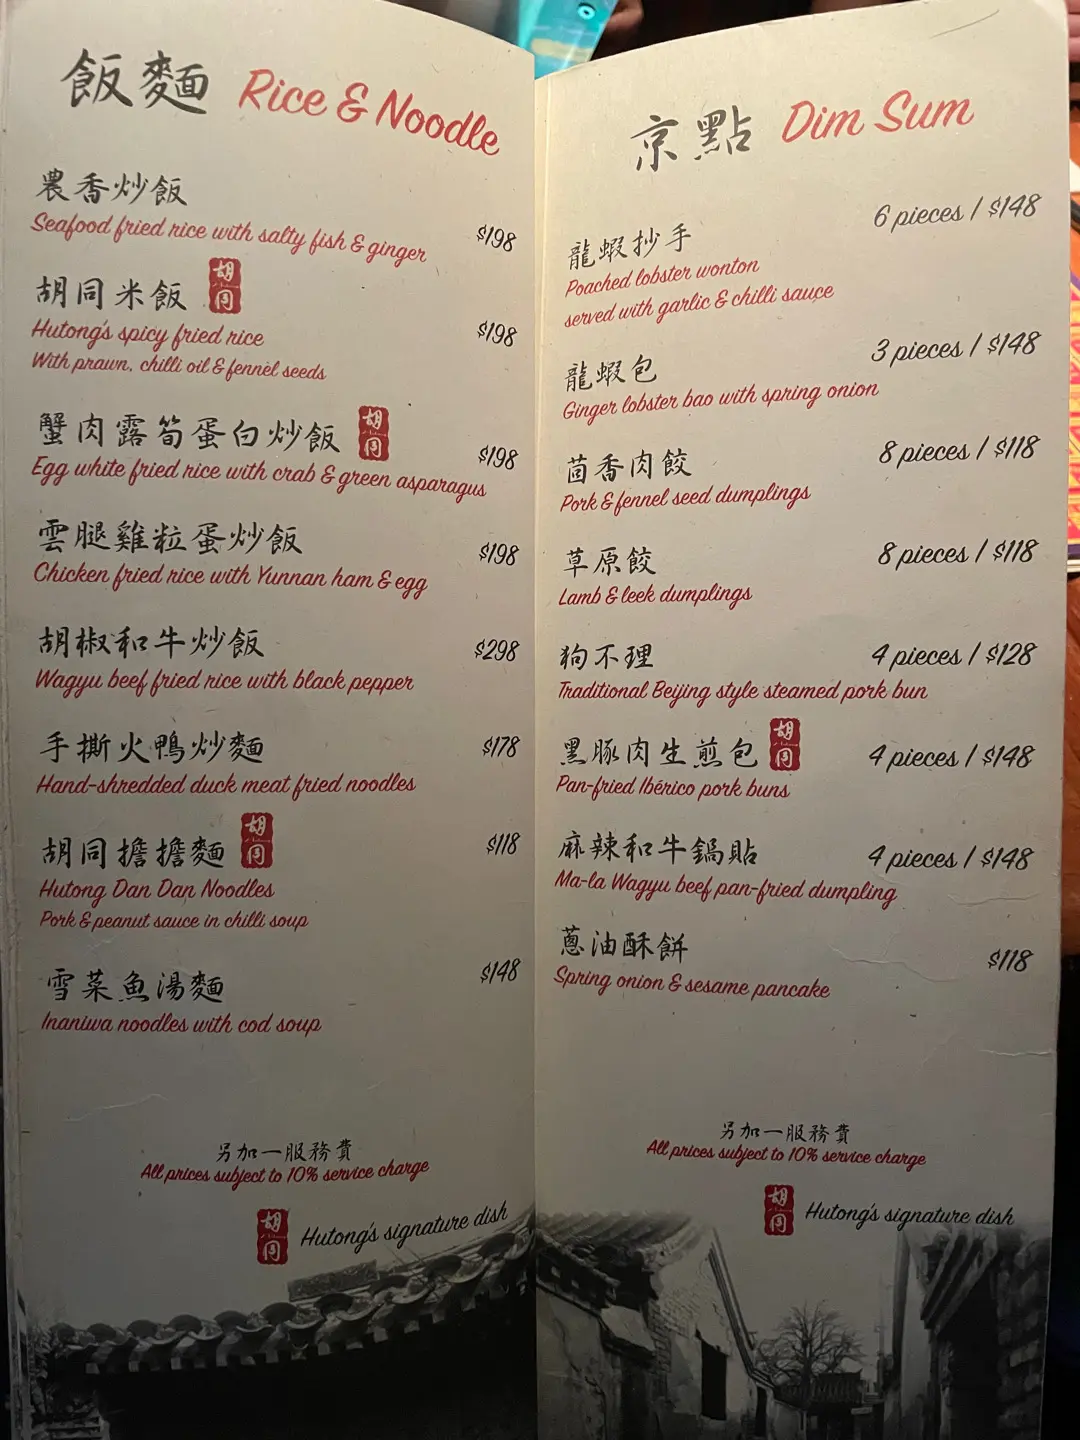 飯麵 Rice & Noodle
農香炒飯
Seafood fried rice with salty fish & ginger $198
胡同米飯 胡同
Hutong's spicy fried rice $198
With prawn, chilli oil & fennel seeds
蟹肉露筍蛋白炒飯 胡同
Egg white fried rice with crab & green asparagus $198
雲腿雞粒蛋炒飯
Chicken fried rice with Yunnan ham & egg $198
胡椒和牛炒飯 $298
Wagyu beef fried rice with black pepper
手撕火鴨炒麵 $178
Hand-shredded duck meat fried noodles
胡同擔擔麵 胡同 $118
Hutong Dan Dan Noodles
Pork & peanut sauce in chilli soup
雪菜魚湯麵 $148
Inaniwa noodles with cod soup
另加一服務費
All prices subject to 10% service charge
胡同 Hutong's signature dish
京點 Dim Sum
6 pieces / $148
龍蝦抄手
Poached lobster wonton
served with garlic & chilli sauce
3 pieces / $148
龍蝦包
Ginger lobster bao with spring onion
茴香肉餃 8 pieces / $118
Pork & fennel seed dumplings
草原餃 8 pieces / $118
Lamb & leek dumplings
狗不理 4 pieces / $128
Traditional Beijing style steamed pork bun
黑豚肉生煎包 胡同 4 pieces / $148
Pan-fried Ibérico pork buns
麻辣和牛鍋貼 4 pieces / $148
Ma-la Wagyu beef pan-fried dumpling
蔥油酥餅 $118
Spring onion & sesame pancake
另加一服務費
All prices subject to 10% service charge
胡同 Hutong's signature dish